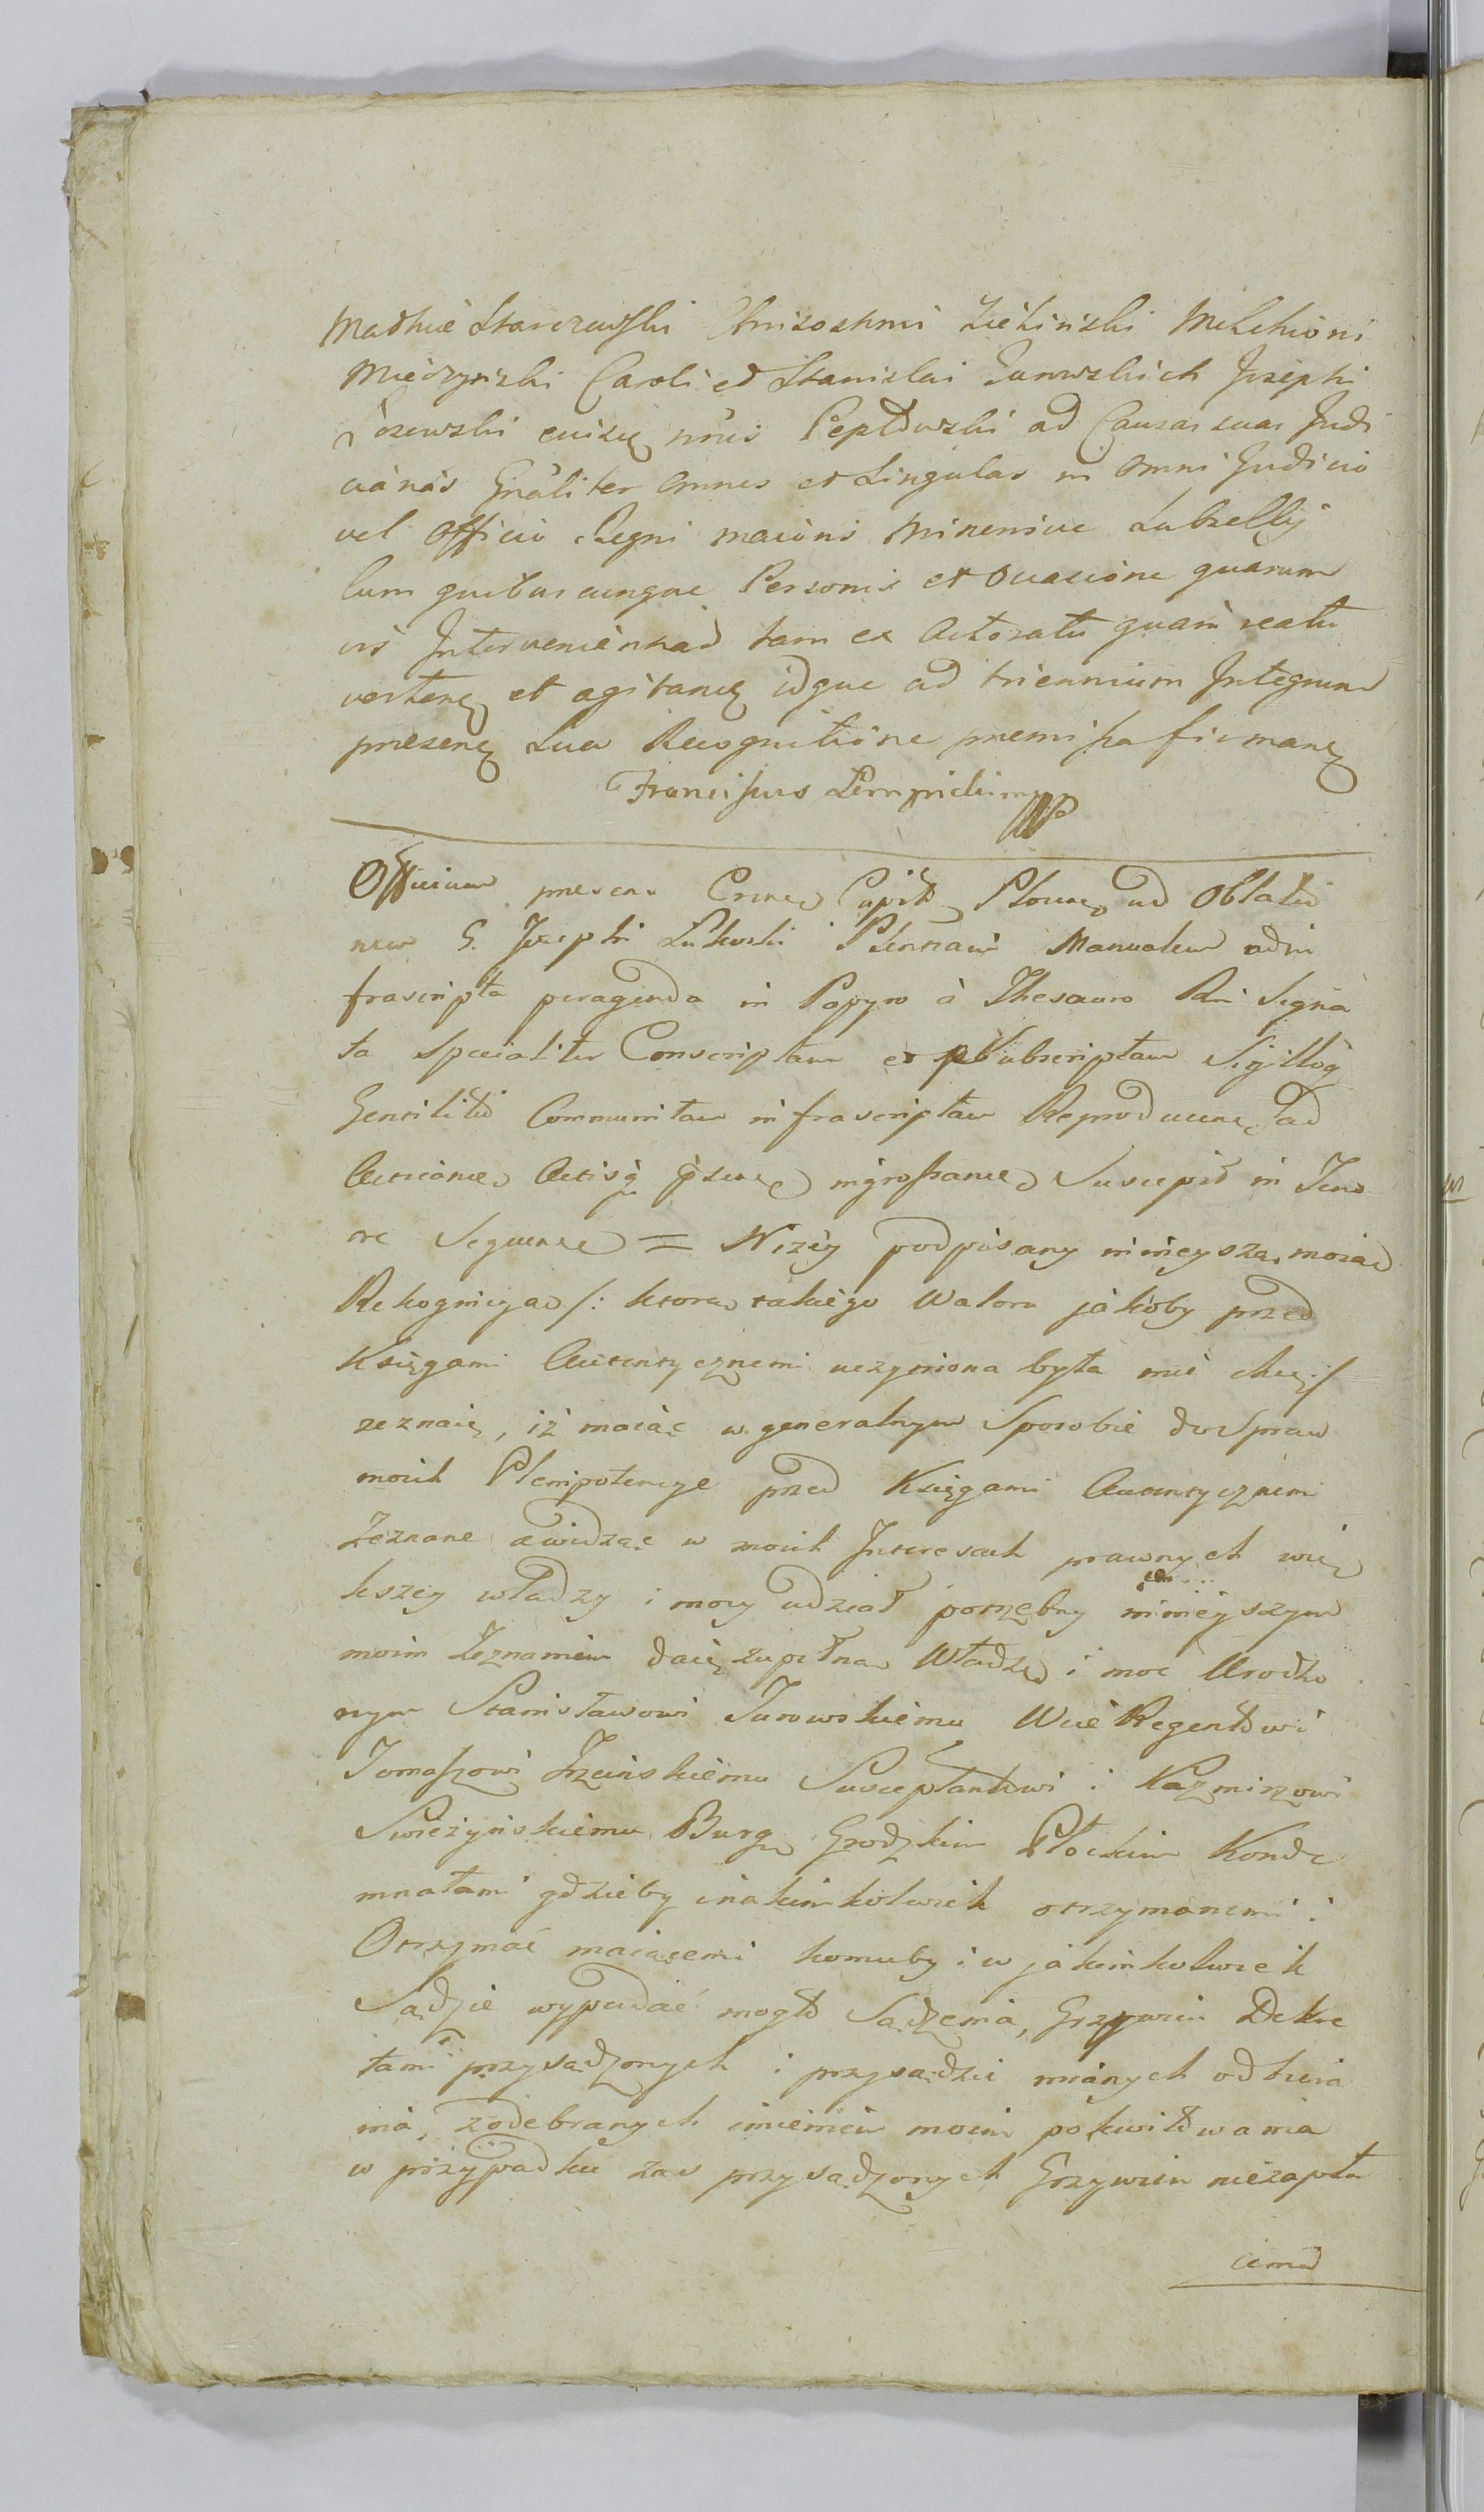 Mathie Starczewski Chrisostomi Zieliński Melchioni
Miedzyński Caroli et Stanislai Turowskich Josephi
Łosewski cuisq nris Pepłowski ad Causas suas Judi
cianas Gnaliter Omnes et Singulas in Omni Judicio
vel Officio Regni maioris Minorisve Subsellij
Cum quibuscunque Personis et Occasione quarum
vis Intervenientiad tam ex Actoratu quam reatu
verteñ et agitañ idque ad triennium Integrum
presenẽ Sua Recognitione premissa firmanẽ
Franciscus Lempicki mpp
Officium presens Crence Capitł Plocen ad Oblatio
nem G. Josephi Plenariam Manualem ad in
frascripta peragenda in Papyro à Thesauro Rni Signa
ta Specialiter Conscriptam et Subscriptam Sigilloq
Gentilitio Communitam infrascriptam Reproducenẽ ad
Acticanđ Actisq pñtibus ingrossanđ Suscepit in Teno
re Sequenti = Niżey podpisany ninieyszą moią
Rekognicyą /: ktora takiego Waloru jakoby przed
Księgami Autentycznemi uczyniona była mieć chcę :/
zeznaię, iż maiąc w generalnym Sposobie do Spraw
moich Plenipotencye przed Księgami Autentycznemi
Zeznane a widząc w moich Interesach prawnych wię
kszey władzy i mocy udział potrzebny ninieyszym
moim Zeznaniem daię zupełną Władzę i moc Urodzo
nym Stanisławowi Turowskiemu Wice Regentowi
Tomaszowi Susceptantowi i Kazmirzowi
Swieżyńskiemu Burg Grodzkim Płockim Konde
mnatami gdzieby i nakimkolwiek otrzymanemi i
Otrzymać maiącemi komuby i w jakimkolwiek
Sądzie wypadać mogło Sądzenia, Grzywien Dekre
tami przysądzonych i przysądzić mianych odbiera
nia, z odebranych imieniem moim pokwitowania
w przypadku zas przysądzonych Grzywien niezapła
cenia